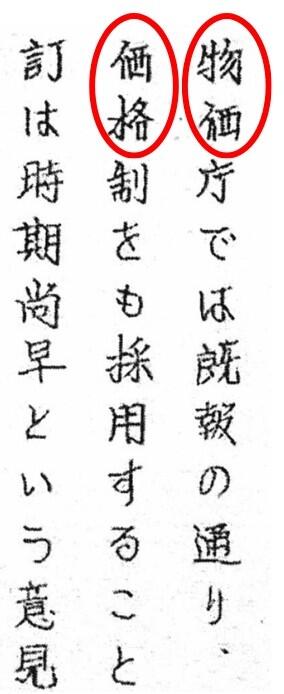 物価庁では既報の通り、
価格制をも採用すること
訂は時期尚早という意見